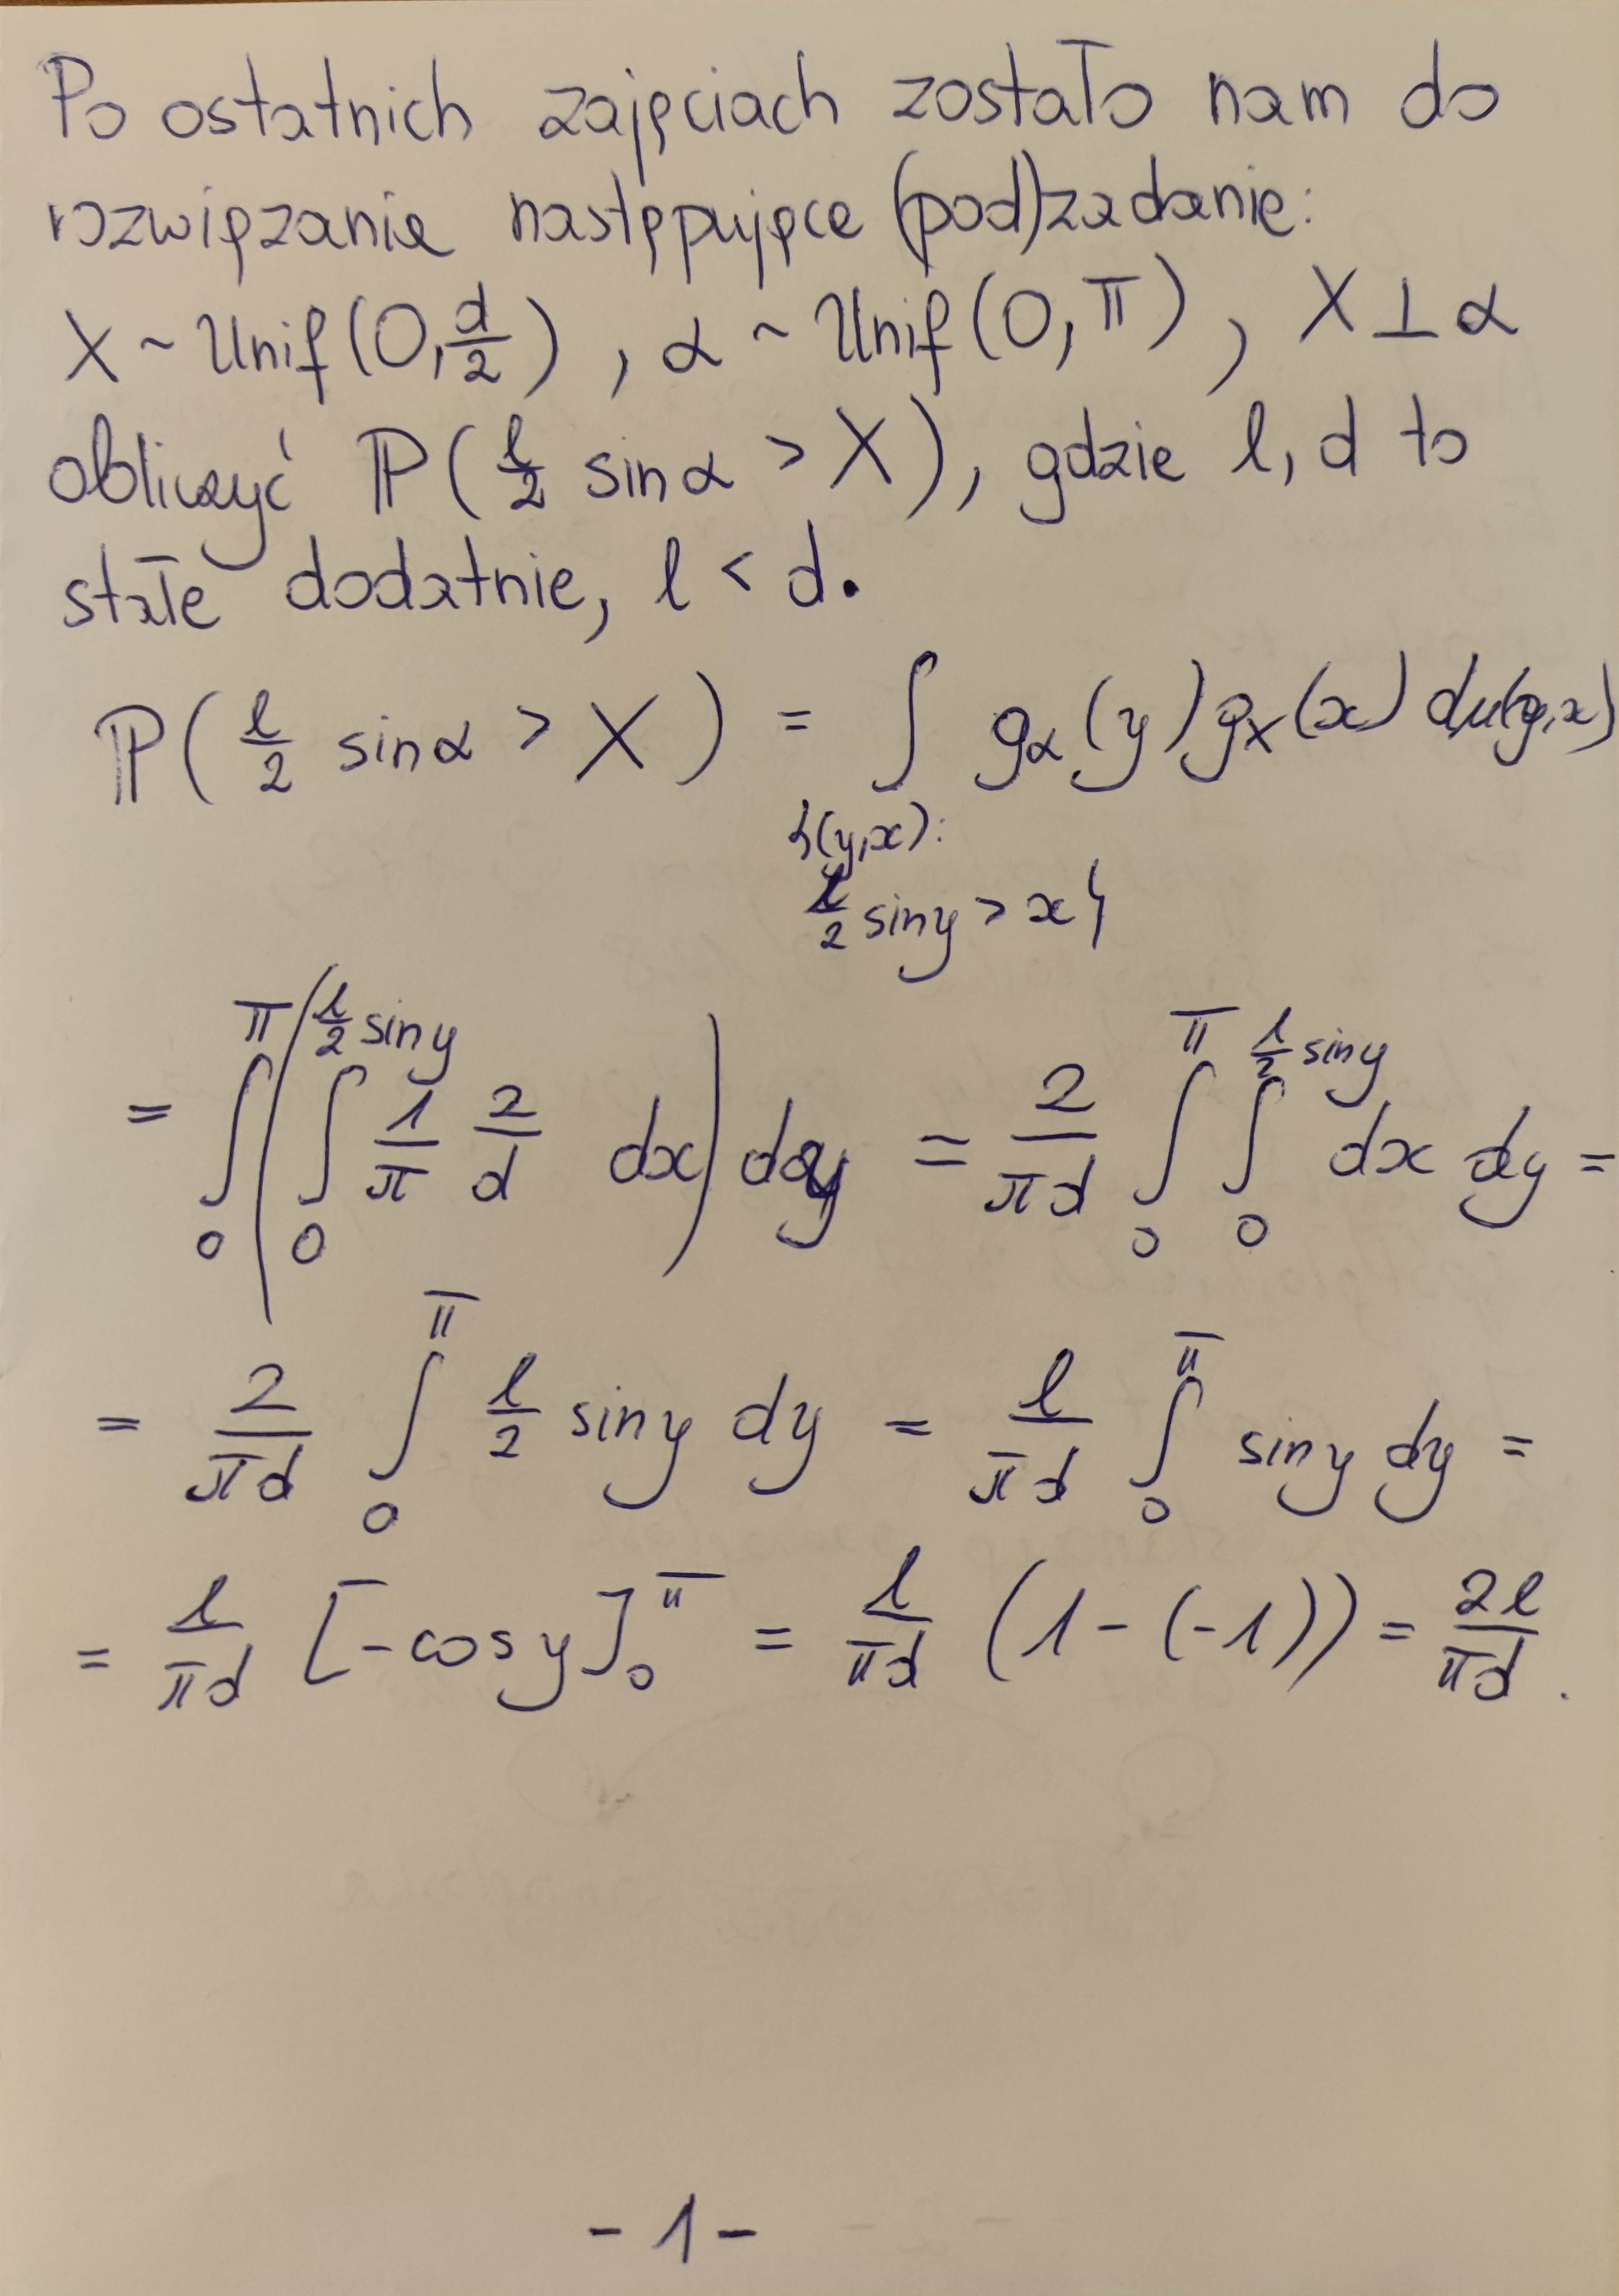 Po ostatnich zajęciach zostało nam do
rozwiązania następujące (pod)zadanie:
X ~ Unif(0, d/2), α ~ Unif(0, π), X ⊥ α
obliczyć ℙ(l/2 sinα > X), gdzie l, d to
stałe dodatnie, l < d.
ℙ(l/2 sinα > X) = ∫ g_α(y) g_X(x) dμ(y,x)
{(y,x):
l/2 sin y > x}
= ∫_0^π (∫_0^{l/2 sin y} 1/π 2/d dx) dy = 2/(πd) ∫_0^π ∫_0^{l/2 sin y} dx dy =
= 2/(πd) ∫_0^π l/2 sin y dy = l/(πd) ∫_0^π sin y dy =
= l/(πd) [-cos y]_0^π = l/(πd) (1-(-1)) = 2l/(πd).
- 1 -